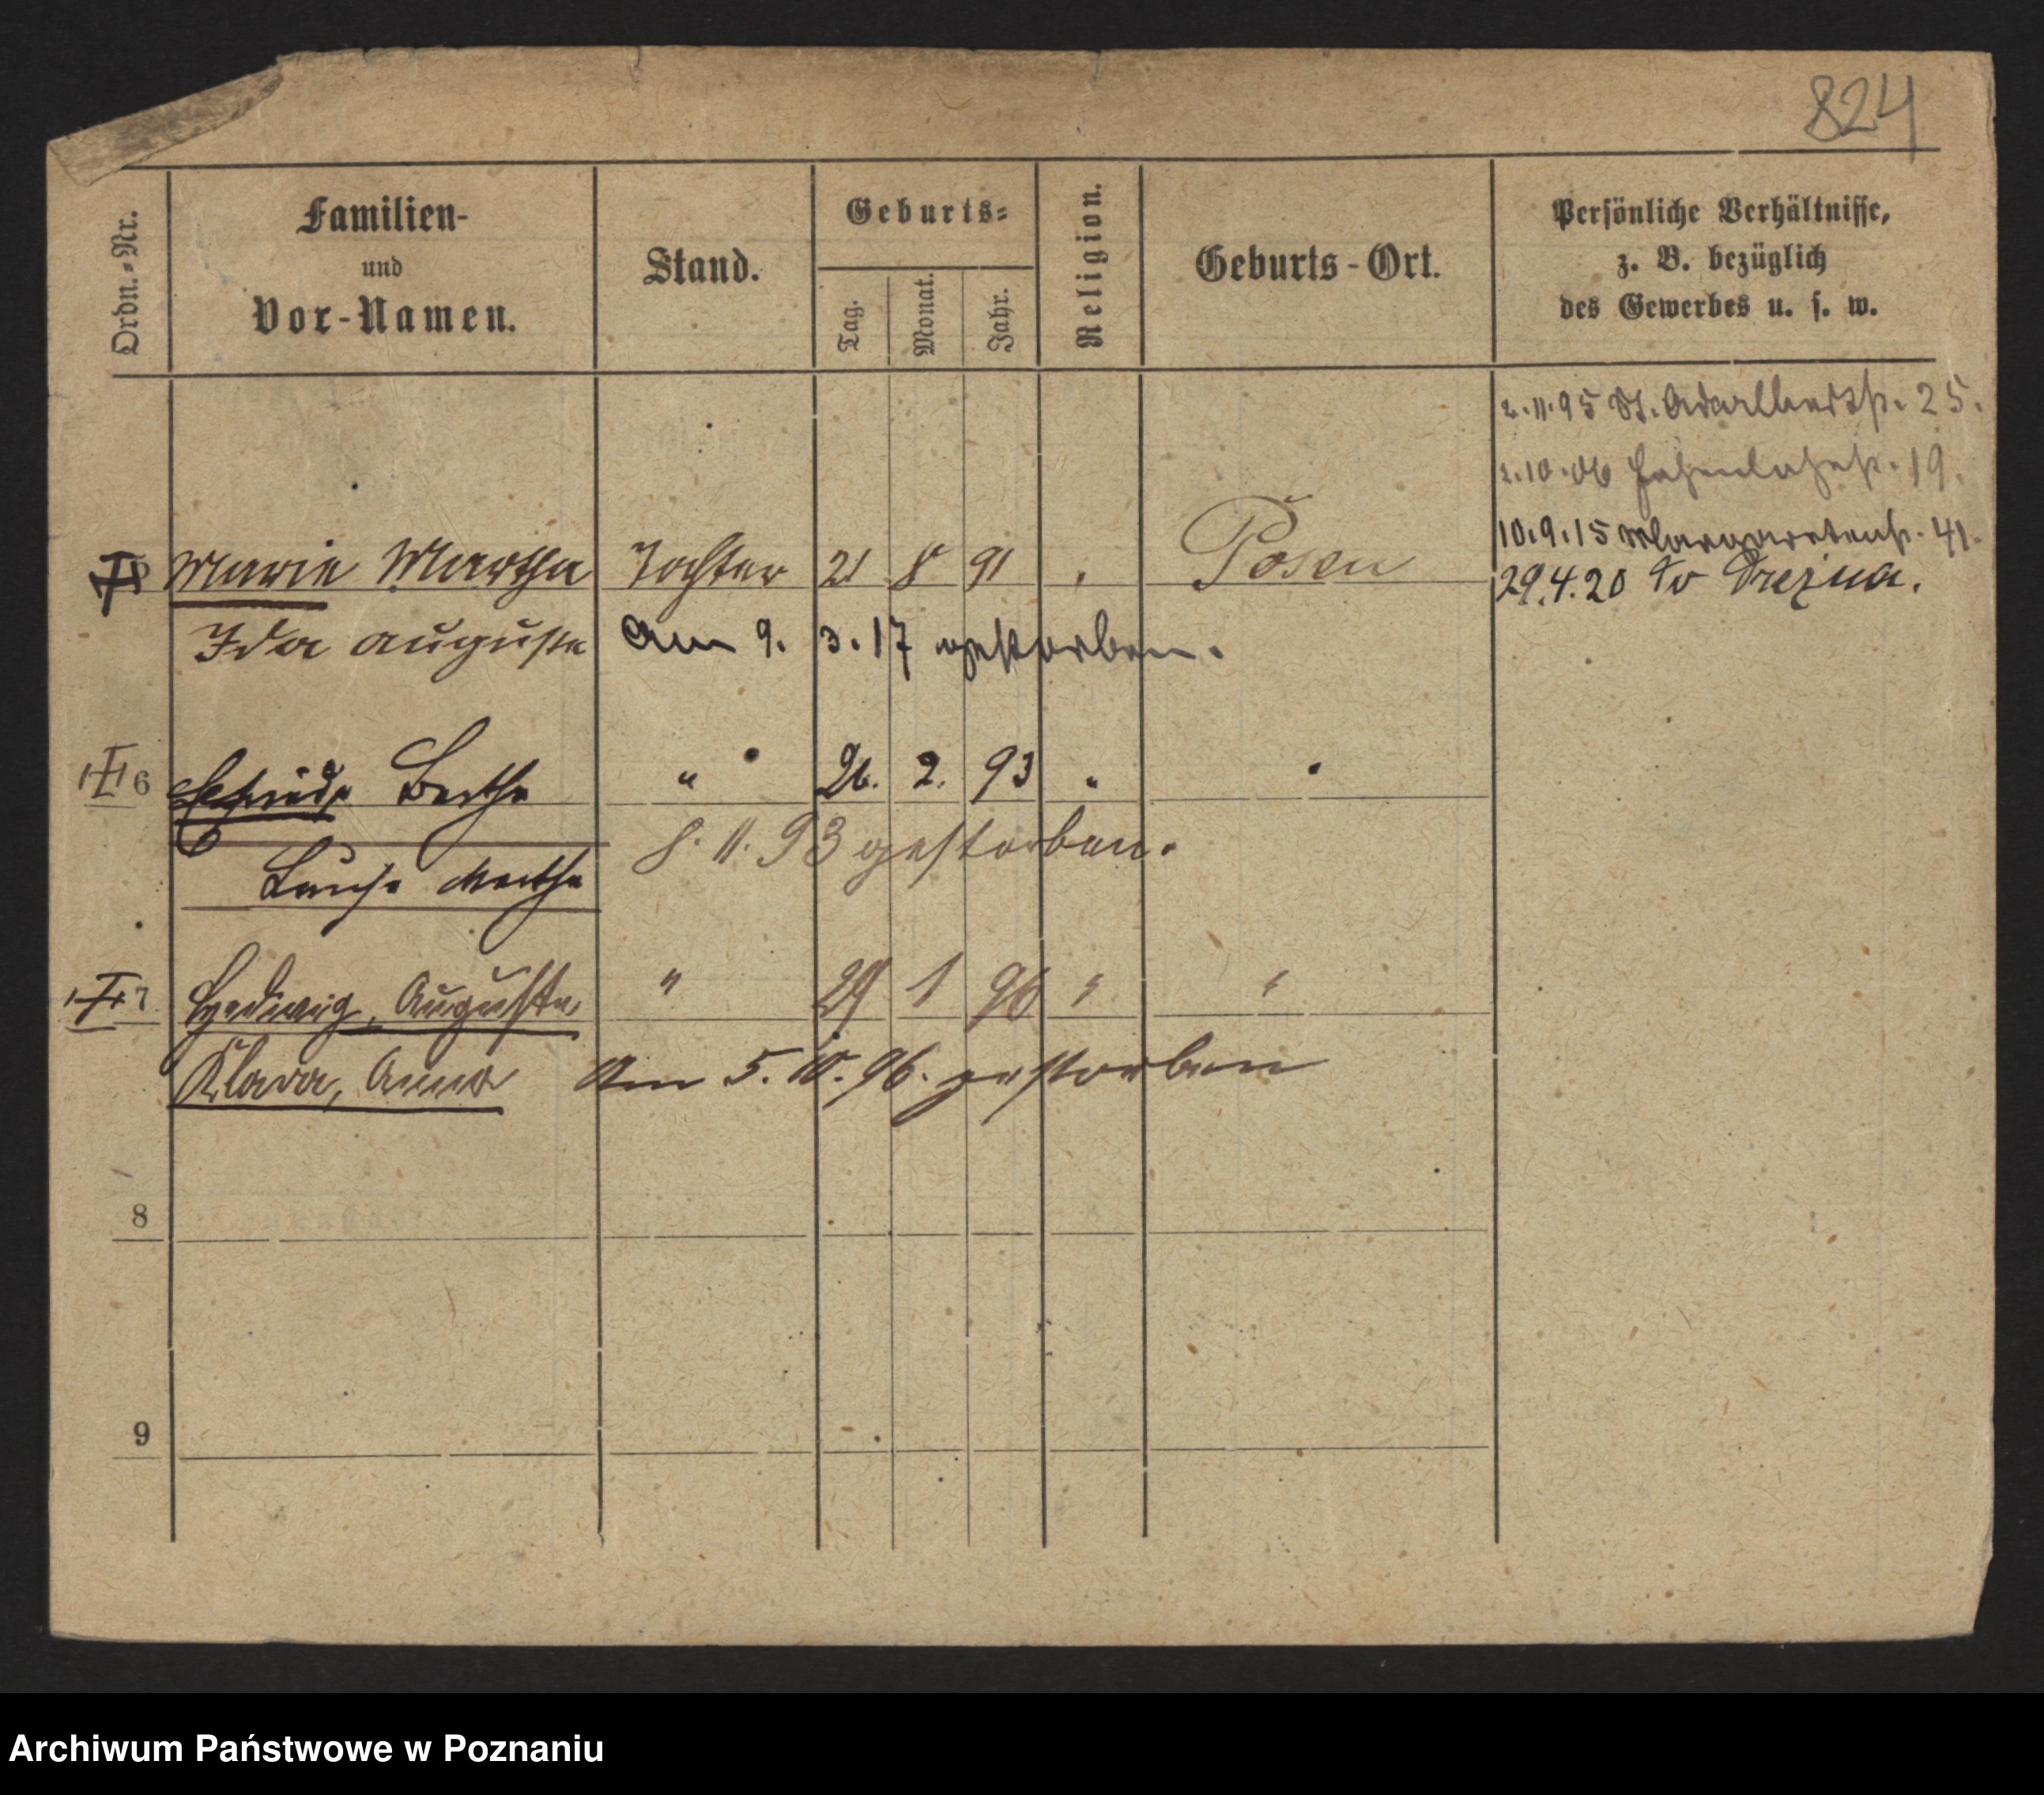 824
Ordn.-Nr.
Familien-
und
Vor-Namen.
Stand.
Geburts-
Tag.
Monat.
Jahr.
Religion.
Geburts-Ort.
Persönliche Verhältnisse,
z. B. bezüglich
des Gewerbes u. s. w.
2.11.95 St. Adalbertstr. 25.
2.10.06
10.9.15 Margaretenstr. 41.
29.4.20
Marie Martha Tochter 21 8 91 Posen
Ida Auguste Am 9. 3. 17 gestorben.
6 Bertha " 26. 2. 93 "
8. 11. 93 gestorben.
Louise Martha
7 Hedwig, Auguste " 29 1 96 " "
Klara, Anna Am 5. 10. 96. gestorben
8
9
Archiwum Państwowe w Poznaniu